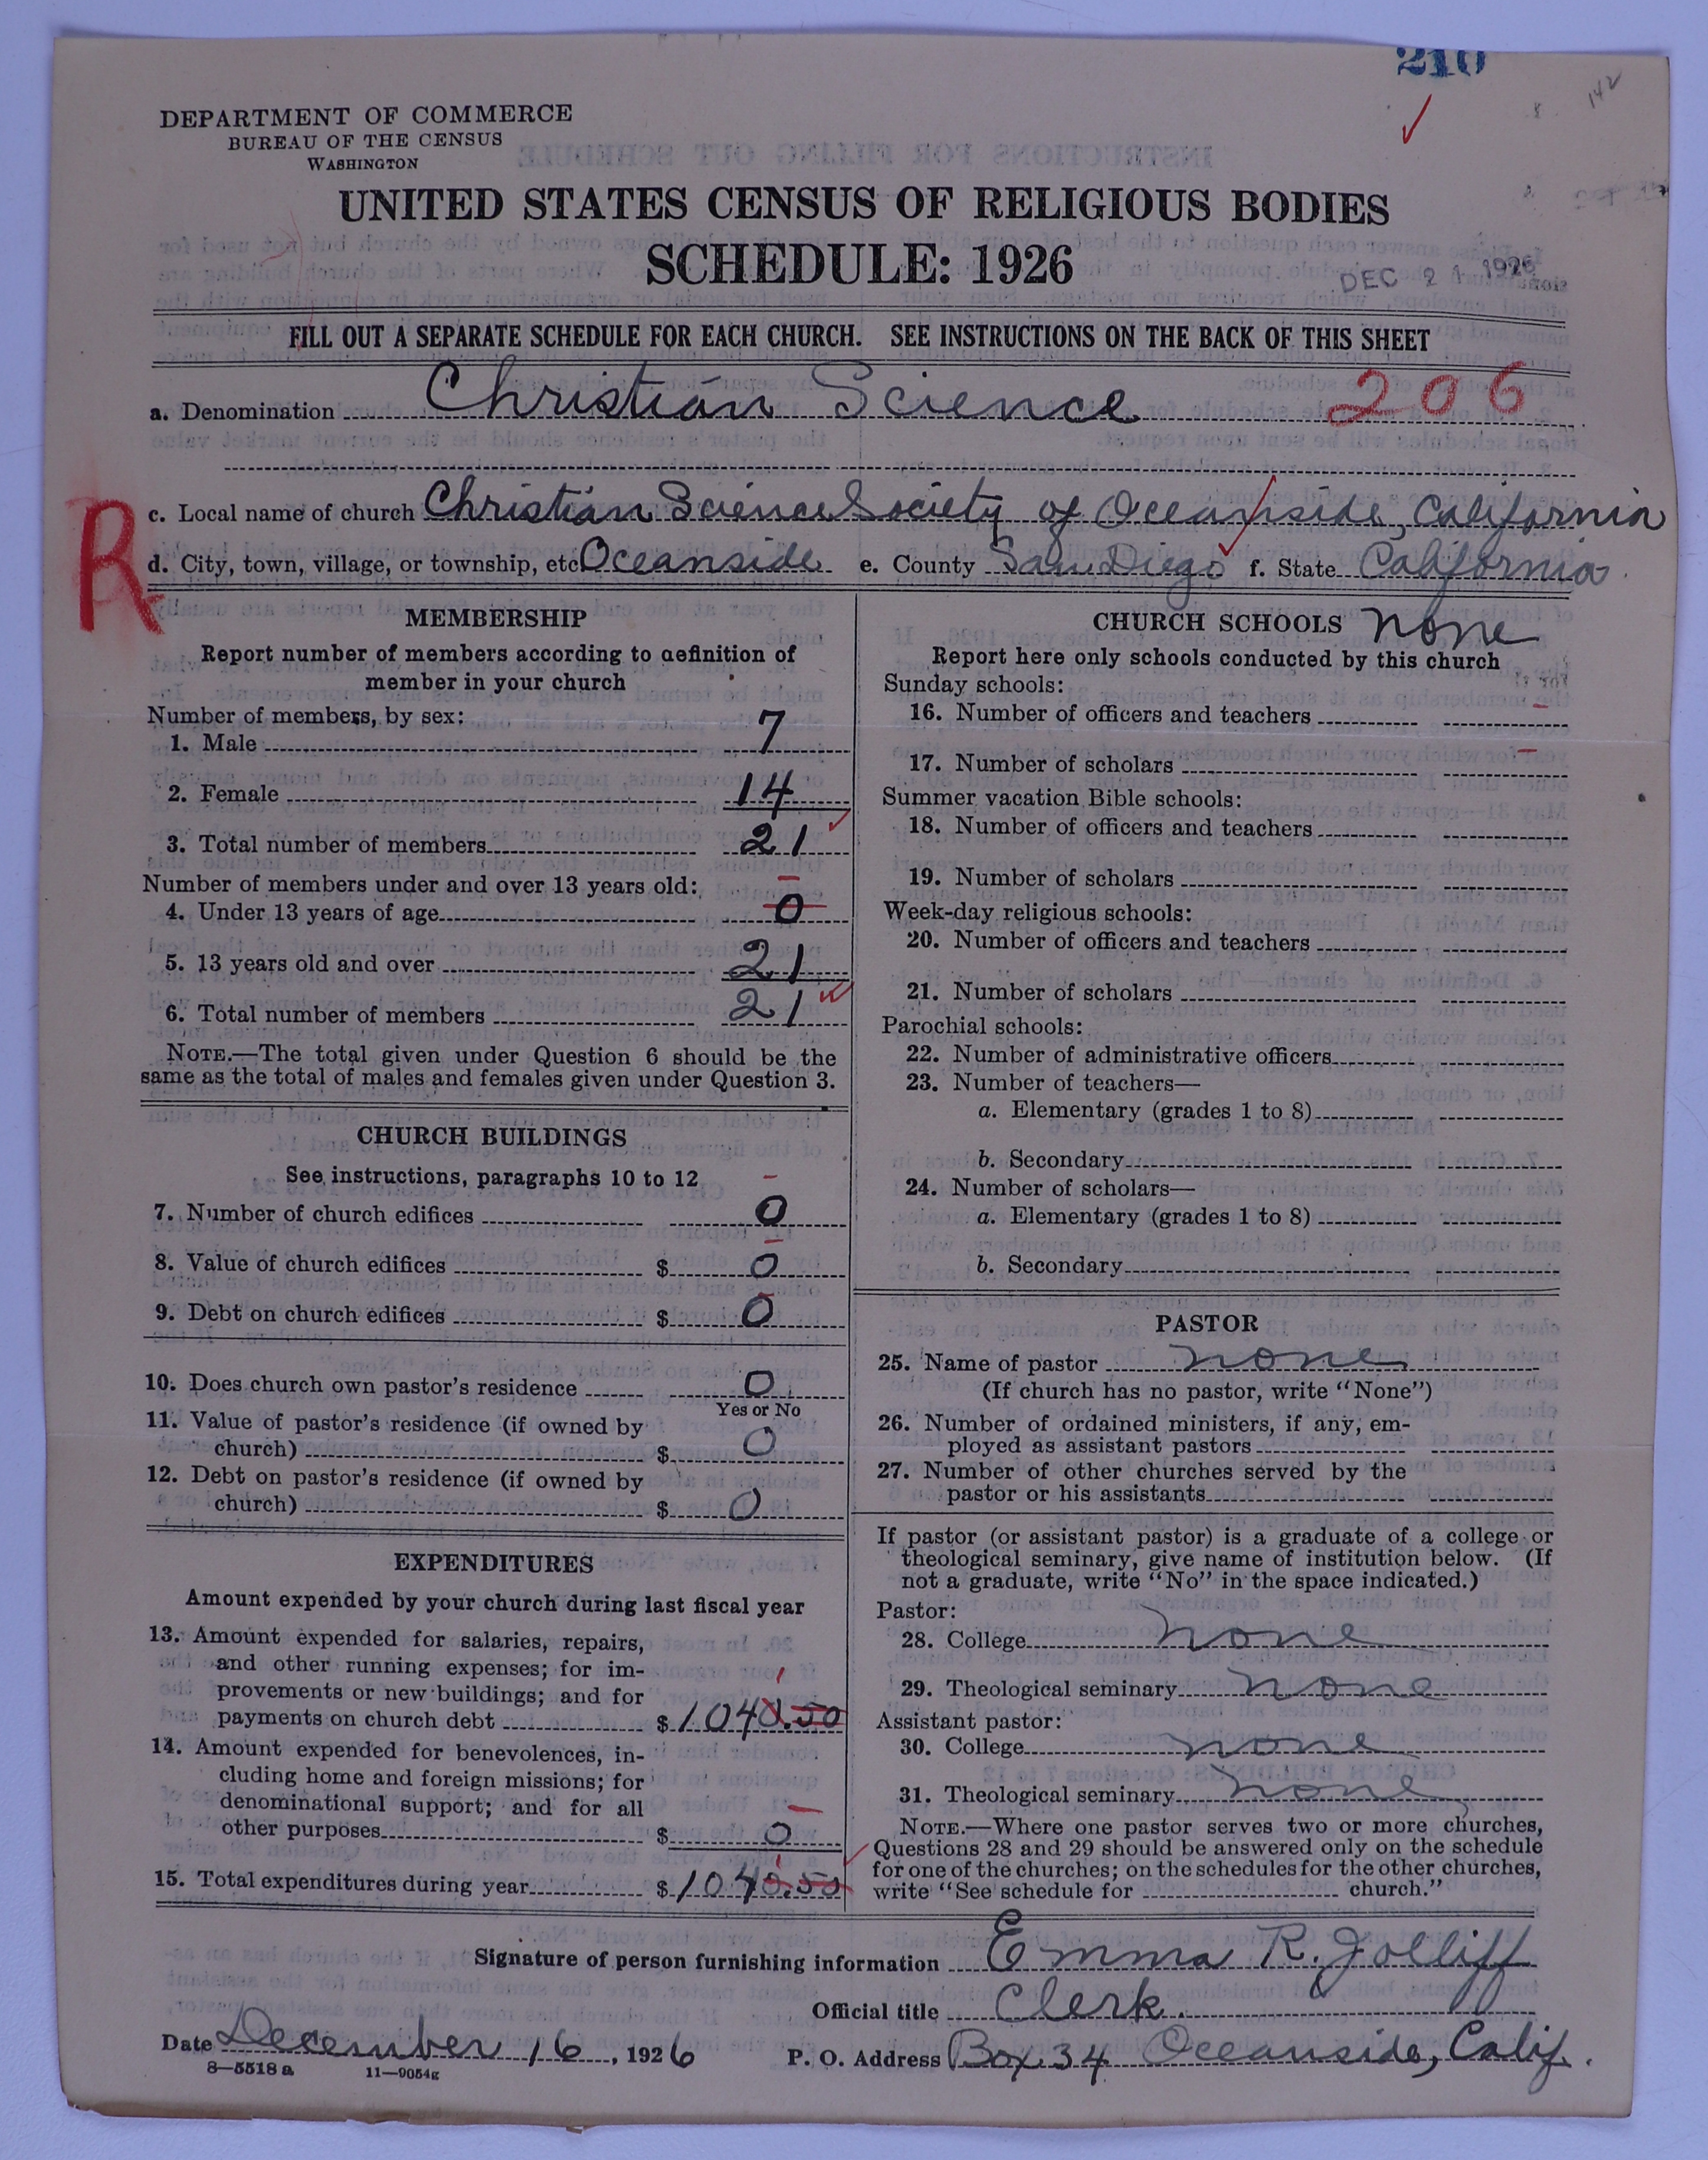 210
142
DEPARTMENT OF COMMERCE
BUREAU OF THE CENSUS
WASHINGTON
UNITED STATES CENSUS OF RELIGIOUS BODIES
SCHEDULE: 1926
DEC 21 1926
FILL OUT A SEPARATE SCHEDULE FOR EACH CHURCH. SEE INSTRUCTIONS ON THE BACK OF THIS SHEET
a. Denomination Christian Science 206
c. Local name of church Christian Science Society of Oceanside, California
R
d. City, town, village, or township, etc Oceanside e. County San Diego f. State California
MEMBERSHIP
Report number of members according to definition of
member in your church
Number of members, by sex:
1. Male 7
2. Female 14
3. Total number of members 21
Number of members under and over 13 years old:
4. Under 13 years of age 0
5. 13 years old and over 21
6. Total number of members 21
NOTE.—The total given under Question 6 should be the
same as the total of males and females given under Question 3.
CHURCH BUILDINGS
See instructions, paragraphs 10 to 12
7. Number of church edifices 0
8. Value of church edifices $ 0
9. Debt on church edifices $ 0
10. Does church own pastor's residence 0
Yes or No
11. Value of pastor's residence (if owned by
church) $ 0
12. Debt on pastor's residence (if owned by
church) $ 0
EXPENDITURES
Amount expended by your church during last fiscal year
13. Amount expended for salaries, repairs,
and other running expenses; for im-
provements or new buildings; and for
1
payments on church debt $ 1040.50
14. Amount expended for benevolences, in-
cluding home and foreign missions; for
denominational support; and for all
other purposes $ 0
1
15. Total expenditures during year $ 1040.50
CHURCH SCHOOLS none
Report here only schools conducted by this church
Sunday schools:
16. Number of officers and teachers
17. Number of scholars
Summer vacation Bible schools:
18. Number of officers and teachers
19. Number of scholars
Week-day religious schools:
20. Number of officers and teachers
21. Number of scholars
Parochial schools:
22. Number of administrative officers
23. Number of teachers—
a. Elementary (grades 1 to 8)
b. Secondary
24. Number of scholars—
a. Elementary (grades 1 to 8)
b. Secondary
PASTOR
25. Name of pastor none
(If church has no pastor, write "None")
26. Number of ordained ministers, if any, em-
ployed as assistant pastors
27. Number of other churches served by the
pastor or his assistants
If pastor (or assistant pastor) is a graduate of a college or
theological seminary, give name of institution below. (If
not a graduate, write "No" in the space indicated.)
Pastor:
28. College none
29. Theological seminary none
Assistant pastor:
30. College none
31. Theological seminary none
NOTE.—Where one pastor serves two or more churches,
Questions 28 and 29 should be answered only on the schedule
for one of the churches; on the schedules for the other churches,
write "See schedule for church."
Signature of person furnishing information Emma R. Jolliff
Official title Clerk.
Date December 16, 1926 P. O. Address Box 34 Oceanside, Calif.
8—5518 a 11—9054g